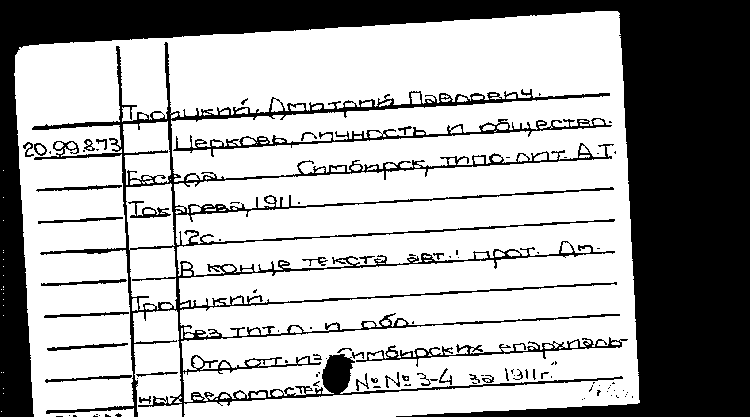 Троицкий, Дмитрий Павлович.
20.99.873 Церковь, личность и общество.
Беседа. Симбирск, типо-лит. А.Т.
Токарева, 1911.
12с.
В конце текста авт.: прот. Дм.
Троицкий.
Без тит. л. и обл.
Отд. отт. из "Симбирских епархиаль-
ных ведомостей" №№ 3-4 за 1911г.